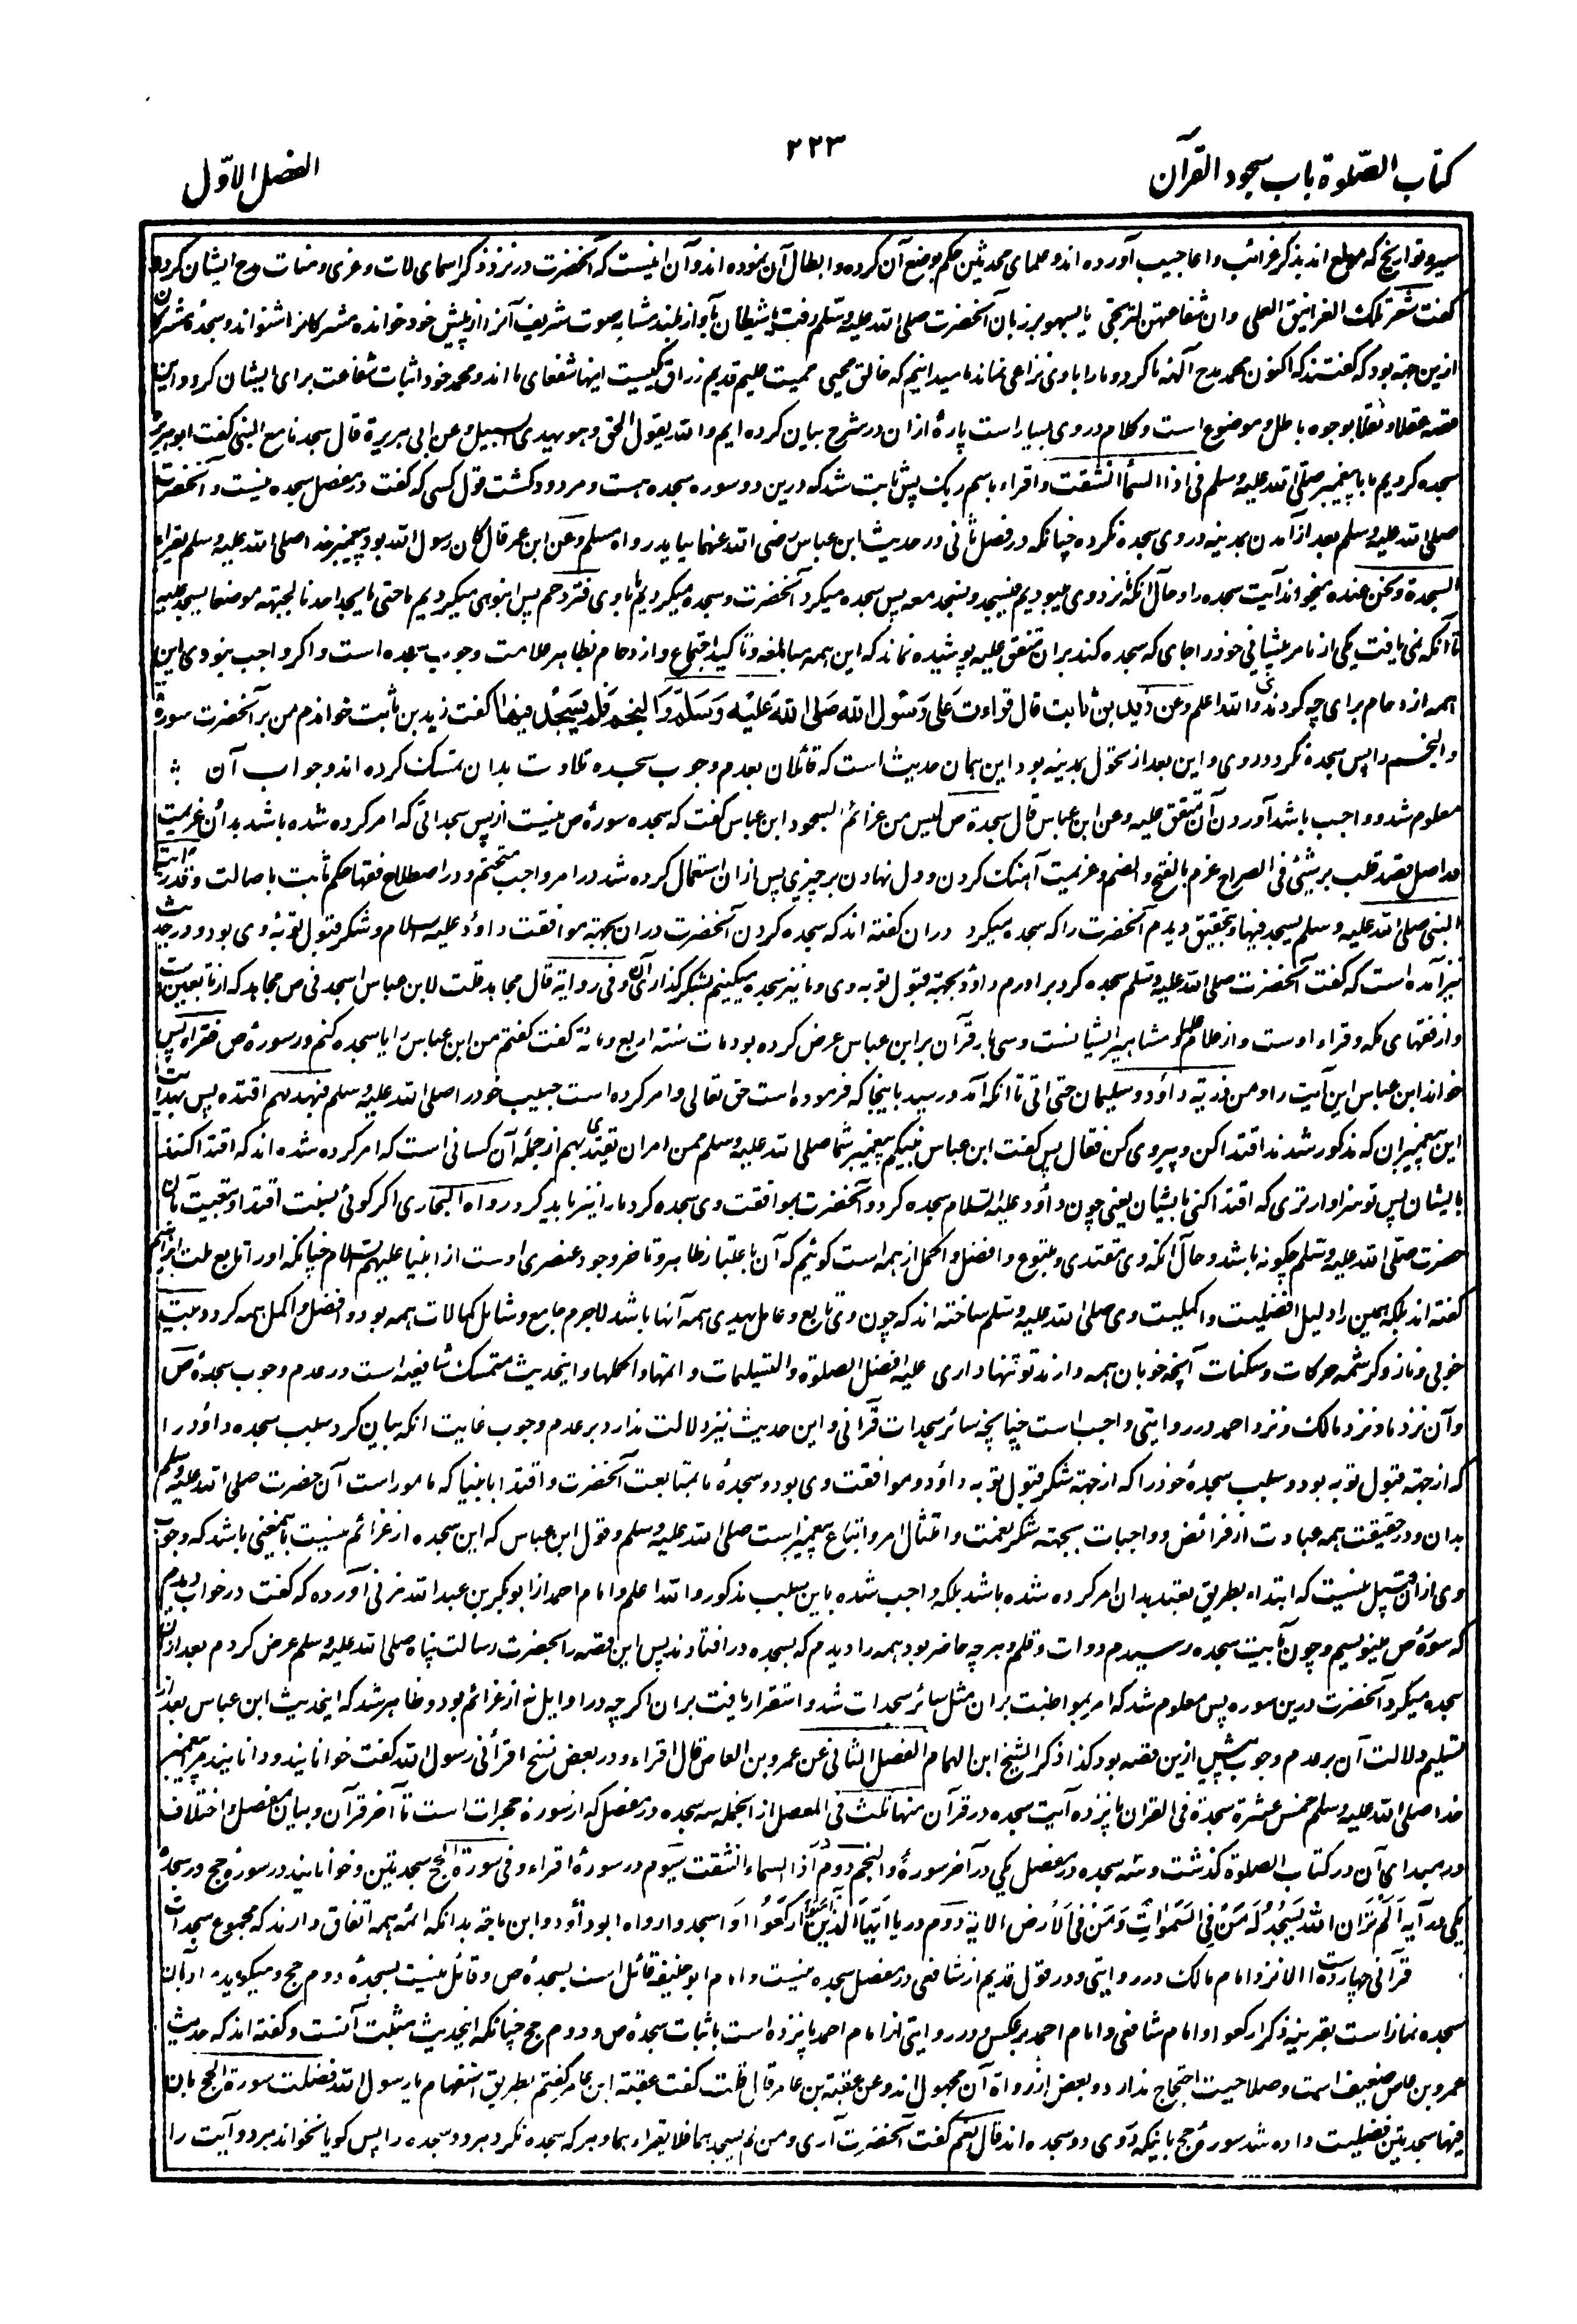 کتاب الصّلوة باب سجود القرآن
۲۲۳
الفصل الاوّل
سیر و تواریخ که مولع اند بذکر غرائب و اعاجیب آورده اند و علمای محدثین حکم بوضع آن کرده و ابطال آن نموده اند و آن اینست که آنحضرت در نزد ذکر اسمای لات و عزی و منات مدح ایشان کرده
گفت شعر تلک الغرانیق العلی وان شفاعتهن لترتجی یا بسهو بر زبان آنحضرت صلی الله علیه وسلم رفت یا شیطان بآواز بلند مشابه صوت شریف آنرا از پیش خود خوانده مشرکانرا شنواند و سجدۀ مشرکان
ازین جهة بود که گفتند که اکنون محمد مدح آلهۀ ما کرد و ما را با وی نزاعی نماند ما میدانیم که خالق محیی ممیت علیم قدیم رزاق یکیست اینها شفعای ما اند و محمد خود اثبات شفاعت برای ایشان کرد و این
قصه عقلا و نقلا بوجوه باطل و موضوع است و کلام در وی بسیار است پارۀ ازان در شرح بیان کرده ایم والله یقول الحق وهو یهدی السبیل وعن ابی هریرة قال سجدنا مع النبی گفت ابوهریره
سجده کردیم ما با پیغمبر صلی الله علیه وسلم فی اذا السماء انشقت واقرا باسم ربک پس ثابت شد که درین دو سوره سجده هست و مردود گشت قول کسی که گفت در مفصل سجده نیست و آنحضرت
صلی الله علیه وسلم بعد از آمدن بمدینه در وی سجده نکرده چنانکه در فصل ثانی در حدیث ابن عباس رضی الله عنهما بیاید رواه مسلم وعن ابن عمر قال کان رسول الله بود پیغمبر خدا صلی الله علیه وسلم یقرأ
السجدة ونحن عنده میخواند آیت سجده را و حال آنکه ما نزد وی میبودیم فیسجد ونسجد معه پس سجده میکرد آنحضرت و سجده میکردیم ما با وی فنزدحم پس انبوهی میکردیم ما حتی ما یجد احدنا لجبهته موضعا یسجد علیه
تا آنکه نمی یافت یکی از ما مر پیشانی خود را جای که سجده کند بران متفق علیه پوشیده نماند که این همه مبالغه و تاکید و اجتماع و ازدحام بظاهر علامت وجوب سجده است و اگر واجب نبودی این
همه ازدحام برای چه کردندی والله اعلم وعن زید بن ثابت قال قرأت علی رسول الله صلی الله علیه وسلم والنجم فلم یسجد فیها گفت زید بن ثابت خواندم من بر آنحضرت سورۀ
والنجم را پس سجده نکرد در وی و این بعد از تحول بمدینه بود این همان حدیث است که قائلان بعدم وجوب سجده تلاوت بدان تمسک کرده اند و جواب آن
معلوم شد و واجب باشد آوردن آن متفق علیه وعن ابن عباس قال سجدة ص لیس من عزائم السجود ابن عباس گفت که سجده سورۀ ص نیست از پس سجداتی که امر کرده شده باشد بدان عزیمت
در اصل قصد قلب بر شئ فی الصراح عزم بالفتح والضم و عزیمت آهنگ کردن و دل نهادن بر چیزی پس ازان استعمال کرده شد در امر واجب متحتم و در اصطلاح فقها حکم ثابت باصالت وقد رایت
النبی صلی الله علیه وسلم یسجد فیها و بتحقیق دیدم آنحضرت را که سجده میکرد دران گفته اند که سجده کردن آنحضرت دران بجهة موافقت داود علیه السلام و شکر قبول توبۀ وی بود و در حدیث
نیز آمده است که گفت آنحضرت صلی الله علیه وسلم سجده کرد برادرم داؤد بجهة قبول توبه وی و ما نیز سجده میکنیم بشکرگذاری آن وفی روایة قال مجاهد قلت لابن عباس اسجد فی ص مجاهد که از تابعین است
و از فقهای مکه و قراء اوست و از علما و مشاهیر ایشانست و سی بار قرآن بر ابن عباس عرض کرده بود مات سنة اربع ومائة گفت گفتم من ابن عباس را آیا سجده کنم در سورۀ ص فقرأ پس
خواند ابن عباس این آیت را ومن ذریته داؤد وسلیمان حتی اتی تا آنکه آمد و رسید باینجا که فرموده است حق تعالی و امر کرده است حبیب خود را صلی الله علیه وسلم فبهدیهم اقتده پس بهدایت
این پیغمبران که مذکور شدند اقتدا کن و پیروی کن فقال پس گفت ابن عباس نبیکم پیغمبر شما صلی الله علیه وسلم ممن امر ان یقتدی بهم از جملۀ آن کسانی است که امر کرده شده اند که اقتدا کنند
بایشان پس تو سزاوارتری که اقتدا کنی بایشان یعنی چون داؤد علیه السلام سجده کرد و آنحضرت بموافقت وی سجده کرد ما را نیز باید کرد رواه البخاری اگر گوئی نسبت اقتدا و تبعیت بآن
حضرت صلی الله علیه وسلم چگونه باشد و حال آنکه وی مقتدی و متبوع و افضل و اکمل از همه است گوئیم که آن باعتبار ظاهر و تاخر وجود عنصری اوست از انبیا علیهم السلام چنانکه او را تابع ملت ابراهیم
گفته اند بلکه همین را دلیل افضلیت و اکملیت وی صلی الله علیه وسلم ساخته اند که چون وی تابع و عامل بهدی همه آنها باشد لاجرم جامع و شامل کمالات همه بود و افضل و اکمل همه گردد بیت
خوبی و ناز و کرشمه حرکات و سکنات آنچه خوبان همه دارند تو تنها داری علیه افضل الصلوة والتسلیمات واتمها واکملها و اینحدیث متمسک شافعیه است در عدم وجوب سجدۀ ص
و آن نزد ما و نزد مالک و نزد احمد در روایتی واجب است چنانچه سائر سجدات قرآنی و این حدیث نیز دلالت ندارد بر عدم وجوب غایت آنکه بیان کرد سبب سجده داؤد را
که از جهة قبول توبه بود و سبب سجدۀ خود را که از جهة شکر قبول توبه داؤد و موافقت وی بود و سجدۀ ما بمتابعت آنحضرت و اقتدا بانبیا که مامور است آن حضرت صلی الله علیه وسلم
بدان و در حقیقت همه عبادت از فرائض و واجبات بجهة شکر نعمت و امتثال امر و اتباع پیغمبر است صلی الله علیه وسلم و قول ابن عباس که این سجده از عزائم نیست باینمعنی باشد که وجوب
وی از آن قبیل نیست که ابتداء بطریق تعبد بدان امر کرده شده باشد بلکه واجب شده باین سبب مذکور والله اعلم و امام احمد از ابوبکر بن عبدالله مزنی آورده که گفت در خواب دیدم
که سورۀ ص مینویسم و چون بآیت سجده رسیدم دوات و قلم و هر چه حاضر بود همه را دیدم که بسجده در افتادند پس این قصه را بحضرت رسالت پناه صلی الله علیه وسلم عرض کردم بعد ازان
سجده میکرد آنحضرت درین سوره پس معلوم شد که امر بمواظبت بران مثل سائر سجدات شد و استقرار یافت بران اگر چه در اوایل نه از عزائم بود و ظاهر شد که اینحدیث ابن عباس بعد از
تسلیم دلالت آن بر عدم وجوب پیش ازین قصه بود کذا ذکر الشیخ ابن الهمام الفصل الثانی عن عمرو بن العاص قال اقراء و در بعض نسخ اقرأنی رسول الله گفت خوانانید و دانانید مرا پیغمبر
خدا صلی الله علیه وسلم خمس عشرة سجدة فی القران پانزده آیت سجده در قرآن منها ثلث فی المفصل از انجمله سه سجده در مفصل که از سورۀ حجرات است تا آخر قرآن و بیان مفصل و اختلاف
در مبدای آن در کتاب الصلوة گذشت و سه سجده در مفصل یکی در آخر سورۀ والنجم دوم در اذا السماء انشقت سیوم در سورۀ اقراء وفی سورة الحج سجدتین و خوانانید در سورۀ حج دو سجدۀ
یکی در آیه الم تر ان الله یسجد له من فی السموات ومن فی الارض الایة دوم در یا ایها الذین امنوا ارکعوا واسجدوا رواه ابوداؤد وابن ماجة بدانکه ائمه همه اتفاق دارند که مجموع سجدات
قرآنی چهارده است الا نزد امام مالک در روایتی و در قول قدیم از شافعی در مفصل سجده نیست و امام ابوحنیفه قائل است بسجدۀ ص و قائل نیست بسجدۀ دوم حج و میگوید مراد بآن
سجده نماز است بقرینه ذکر ارکعوا و امام شافعی و امام احمد برعکس و در روایتی از امام احمد پانزده است باثبات سجدۀ ص و دوم حج چنانکه اینحدیث مثبت آنست و گفته اند که حدیث
عمرو بن عاص ضعیف است و صلاحیت احتجاج ندارد و بعض از رواة آن مجهول اند وعن عقبة بن عامر قال قلت گفت عقبة ابن عامر گفتم بطریق استفهام یا رسول الله فضلت سورة الحج بان
فیها سجدتین فضیلت داده شد سورۀ حج بآنکه در وی دو سجده اند قال نعم گفت آنحضرت آری ومن لم یسجدهما فلا یقرأهما و هر که سجده نکرد هر دو سجده را پس گویا نخواند هر دو آیت را